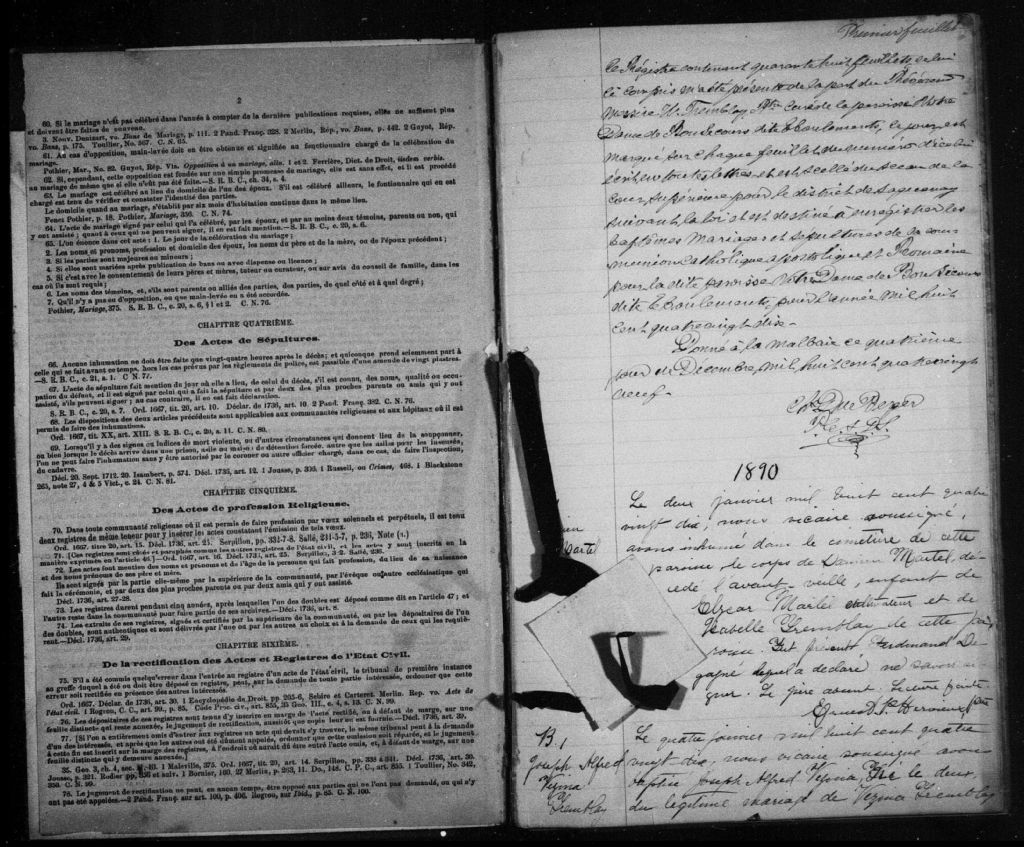 2
60. Si le mariage n'est pas célébré dans l'année à compter de la dernière publications requises, elles ne suffisent plus
et doivent être faites de nouveau.
3. Nouv. Denizart, vo. Bans de Mariage, p. 111. 2 Pand. Franç. 328. 2 Merlin, Rép., vo. Bans, p. 442. 2 Guyot, Rép.
vo. Bans, p. 175. Toullier, No. 567. C. N. 65.
61. Au cas d'opposition, main-levée doit en être obtenue et signifiée au fonctionnaire chargé de la célébration du
mariage.
Pothier, Mar., No. 82. Guyot, Rép. Vis. Opposition à un mariage, alin. 1 et 2. Ferrière, Dict. de Droit, iisdem verbis.
62. Si, cependant, cette opposition est fondée sur une simple promesse de mariage, elle est sans effet, et il est procédé
au mariage de même que si elle n'eût pas été faite.—S. R. B. C., ch. 34, s. 4.
63. Le mariage est célébré au lieu du domicile de l'un des époux. S'il est célébré ailleurs, le fontionnaire qui en est
chargé est tenu de vérifier et constater l'identité des parties.
Le domicile quant au mariage, s'établit par six mois d'habitation continue dans le même lieu.
Fenet Pothier, p. 18. Pothier, Mariage, 356. C. N. 74.
64. L'acte de mariage signé par celui qui l'a célébré, par les époux, et par au moins deux témoins, parents ou non, qui
y ont assisté; quant à ceux qui ne peuvent signer, il en est fait mention.—S. R. B. C., c. 20, s. 6.
65. L'on énonce dans cet acte: 1. Le jour de la célébration du mariage;
2. Les noms et pronoms, profession et domicile des époux, les noms du père et de la mère, ou de l'époux précédent;
3. Si les parties sont majeures ou mineurs;
4. Si elles sont mariées après publication de bans ou avec dispense ou licence;
5. Si c'est avec le consentement de leurs pères et mères, tuteur ou curateur, ou sur avis du conseil de famille, dans les
cas où ils sont requis;
6. Les noms des témoins, et, s'ils sont parents ou alliés des parties, de quel côté et à quel degré;
7. Qu'il n'y a pas eu d'opposition, ou que main-levée en a été accordée.
Pothier, Mariage, 375. S. R. B. C., c. 20, s. 6, § 1 et 2. C. N. 76.
CHAPITRE QUATRIÈME.
Des Actes de Sépultures.
66. Aucune inhumation ne doit être faite que vingt-quatre heures après le décès; et quiconque prend sciemment part à
celle qui se fait avant ce temps, hors les cas prévus par les règlements de police, est passible d'une amende de vingt piastres.
—S. R. B. C., c. 21, s. 1. C. N. 77.
67. L'acte de sépulture fait mention du jour où elle a lieu, de celui du décès, s'il est connu, des noms, qualité ou occu-
pation du défunt, et il est signé par celui qui a fait la sépulture et par deux des plus proches parents ou amis qui y ont
assisté, s'ils peuvent signer; au cas contraire, il en est fait déclaration.
S. R. B. C., c. 20, s. 7. Ord. 1667, tit. 20, art. 10. Déclar. de 1736, art. 10. 2 Pand. Franç. 382. C. N. 76.
68. Les dispositions des deux articles précédents sont applicables aux communautés religieuses et aux hôpitaux où il est
permis de faire des inhumations.
Ord. 1667, tit. XX, art. XIII. S. R. B. C., c. 20, s. 11. C. N. 80.
69. Lorsqu'il y a des signes ou indices de mort violente, ou d'autres circonstances qui donnent lieu de la soupçonner,
ou bien lorsque le décès arrive dans une prison, asile ou maison de détention forcée, autre que les asiles pour les insensés,
l'on ne peut faire l'inhumation sans y être autorisé par le coroner ou autre officier chargé, dans ce cas, de faire l'inspection,
du cadavre.
Décl. 20. Sept. 1712. 20. Isambert, p. 574. Décl. 1736, art. 12. 1 Jousse, p. 336. 1 Russell, ou Crimes, 468. 1 Blackstone
265, note 27, 4 & 5 Vict., c. 24. C. N. 81.
CHAPITRE CINQUIÈME.
Des Actes de profession Religieuse.
70. Dans toute communauté religieuse où il est permis de faire profession par vœux solennels et perpétuels, il est tenu
deux registres de même teneur pour y insérer les actes constatant l'émission de tels vœux.
Ord. 1667, titre 20, art. 15. Décl. 1736, art. 25. Serpillon, pp. 331-7-8. Sallé, 231-5-7, p. 236, Note (1.)
71. (Ces registres sont cotés et paraphés comme les autres registres de l'état civil, et les actes y sont inscrits en la
manière exprimée en l'article 46.)—Ord. 1667, art. 16. Décl. 1733, art. 25. Serpillon, 3-2. Sallé, 236.
72. Les actes font mention des noms et pronoms et de l'âge de la personne qui fait profession, du lieu de sa naissance
et des noms prénoms de ses père et mère.
Ils sont signés par la partie elle-même par la supérieure de la communauté, par l'évêque ou autre ecclésiastique qui
fait la cérémonie, et par deux des plus proches parents ou par deux amis qui y ont assisté.
Décl. 1736, art. 27-28.
73. Les registres durent pendant cinq années, après lesquelles l'un des doubles est déposé comme dit en l'article 47; et
l'autre reste dans la communauté pour faire partie de ses archives.—Décl. 1736, art. 8.
74. Les extraits de ses registres, signés et certifiés par la supérieure de la communauté, ou par les dépositaires de l'un
des doubles, sont authentiques et sont délivrés par l'une ou par les autres au choix et à la demande de ceux qui les requiè-
rent.—Décl. 1736, art. 29.
CHAPITRE SIXIÈME.
De la rectification des Actes et Registres de l'Etat Civil.
75. S'il a été commis quelqu'erreur dans l'entrée au registre d'un acte de l'état civil, le tribunal de première instance
au greffe duquel a été ou doit être déposé ce registre, peut, sur la demande de toute partie intéressée, ordonner que cette
erreur soit rectifiée en présence des autres intéressés.
76. Les dépositaires de ces registres sont tenus d'y inscrire en marge de l'acte rectifié, ou à défaut de marge, sur une
feuille distincte qui y reste annexée, le jugement de rectification, aussitôt que copie leur en est fournie.—Décl. 1736, art. 39.
77. [Si l'on a entièrement omis d'entrer aux registres un acte qui devait s'y trouver, le même tribunal peut à la demande
d'un des intéressés, et après que les autres ont été dûment appelés, ordonner que cette omission soit réparée, et le jugement
à cette fin est inscrit sur la marge des registres, à l'endroit où aurait dû être entré l'acte omis, et, à défaut de marge, sur une
feuille distincte qui y demeure annexée.]
78. Le jugement de rectification ne peut, en aucun temps, être opposé aux parties qui ne l'ont pas demandé, ou qui n'y
ont pas été appelées.—2 Pand. Franç. sur art. 100, p. 406. Rogron, sur Ibid., p. 85. C. N. 100.
Premier feuillet
le Régistre contenant quarante huit feuillets celui
ci compris m'a été présenté de la part du Révérend
Messire H. Tremblay Ptre Curé de la paroisse Notre
Dame de Bonsecours dite Eboulements, le jour est
marqué sur chaque feuillet du numéro d'icelui
écrit en toutes lettres et est scellé du sceau de la
Cour Supérieure pour le district de Saguenay
suivant la loi et est destiné à enregistrer les
Baptêmes Mariages et Sépultures de la com
munion Catholique apostolique et Romaine
pour la dite paroisse Notre Dame de Bon Secours
dite Eboulements, pour l'année mil huit
cent quatre vingt dix-
Donné à la Malbaie ce quatrième
jour de Décembre, mil huit cent quatre vingt
neuf-
Ch Du Berger
1890
Le deux janvier mil huit cent quatre
vingt dix, nous vicaire soussigné,
avons inhumé dans le cimetière de cette
paroisse, le corps de Damien Martel, dé-
cédé l'avant-veille, enfant de
Elzéar Martel cultivateur et de
Isabelle Tremblay de cette pa-
roisse. Fut présent Ferdinand De
gagné lequel a déclaré ne savoir si-
gner. Le père absent. Lecture faite
Martel
B, 1
Joseph Alfred
Vézina
&
Tremblay
Le quatre janvier mil huit cent quatre
vingt dix, nous vicaire soussigné avons
baptisé Joseph Alfred Vézina, né le deux,
du légitime mariage de Vézina Tremblay